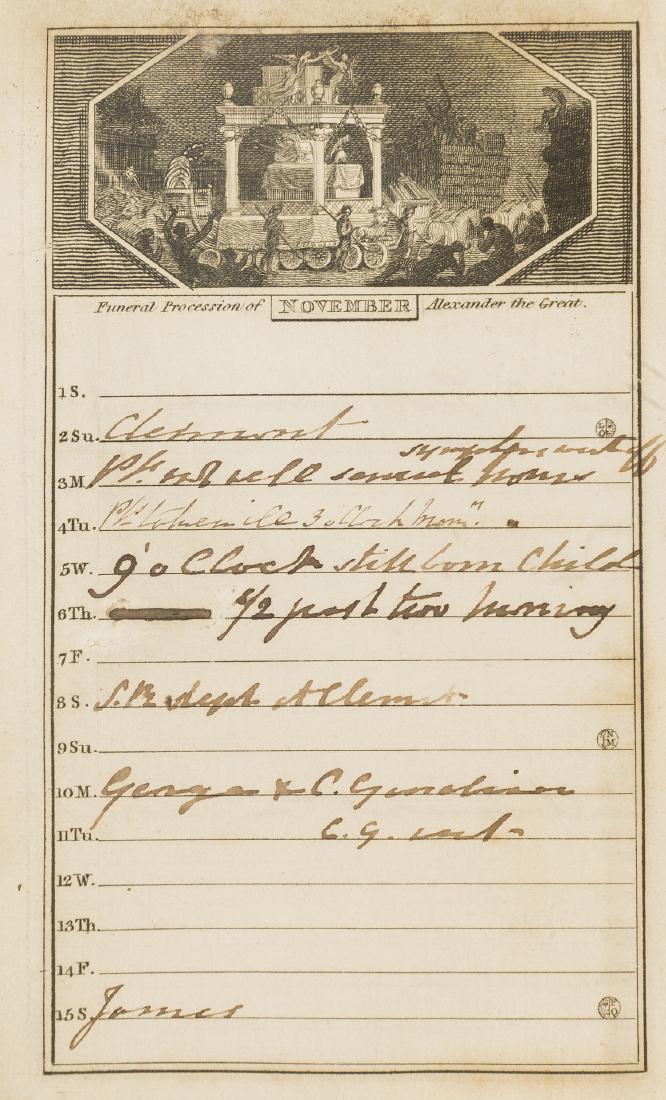 Funeral Procession of NOVEMBER Alexander the Great.
1 S.
2 Su. Claremont
symptoms went off
3 M. Ps. not well several hours
4 Tu. Ps. taken ill 3 o Clock morn.
5 W. 9 o Clock still born Child
6 Th. 1/2 past two morning
7 F.
8 S. S.R. slept at Claremt
9 Su.
NM
10 M. George & C.
11 Tu. C. G. went
12 W.
13 Th.
14 F.
15 S James